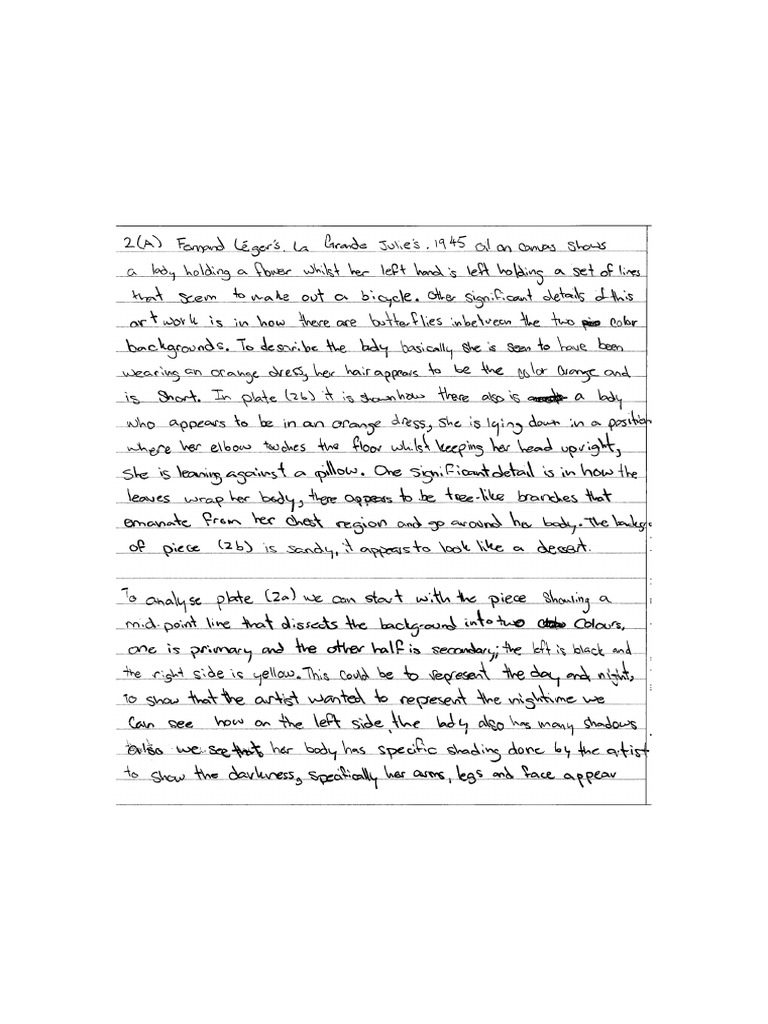 2(A) Fernand Léger's. La Grande Julie's. 1945 Oil on canvas shows
a lady holding a flower whilst her left hand is left holding a set of lines
that seem to make out a bicycle. Other significant details of this
artwork is in how there are butterflies inbetween the two color
backgrounds. To describe the lady basically she is seen to have been
wearing an orange dress, her hair appears to be the color Orange and
is Short. In plate (2b) it is shown how there also is a lady
who appears to be in an orange dress, she is lying down in a position
where her elbow touches the floor whilst keeping her head upright,
She is leaning against a pillow. One significant detail is in how the
leaves wrap her body, there appears to be tree-like branches that
emanate from her chest region and go around her body. The backg
of piece (2b) is sandy, it appears to look like a desert.
To analyse plate (2a) we can start with the piece Showing a
mid-point line that dissects the background into two Colours,
one is primary and the other half is secondary; the left is black and
the right side is yellow. This could be to represent the day and night,
to show that the artist wanted to represent the nightime we
Can see how on the left side, the lady also has many shadows
also we see that her body has specific shading done by the artist
to show the darkness, specifically her arms, legs and face appear